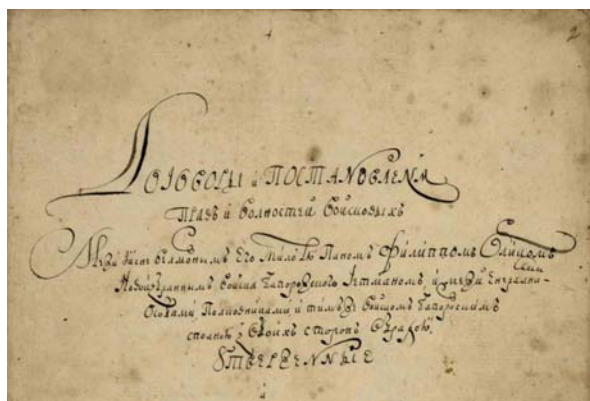 2
Договоры и ПОСТАНОВЛЕНЯ
Правъ и волностей войсковыхъ
Межи Ясне велможнымъ Его милостю Паномъ Филиппомъ Орликомъ
Новоизбраннымъ войска Запорожского Гетманомъ, и межи Енерални-
Особами Полковниками, и тимъже войскомъ Запорожскимъ
сполною з своихъ сторонъ обрадою,
УТВЕРЖЕННЫЕ